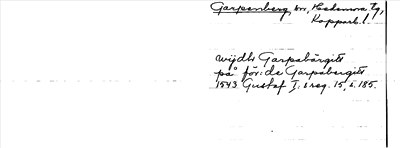 Garpenberg, sn, Hedemora tg,
Kopparb. l.
wijdh Garpabärgit
på för:de Garpabergit
1543 Gustaf I:s reg. 15, s. 185.